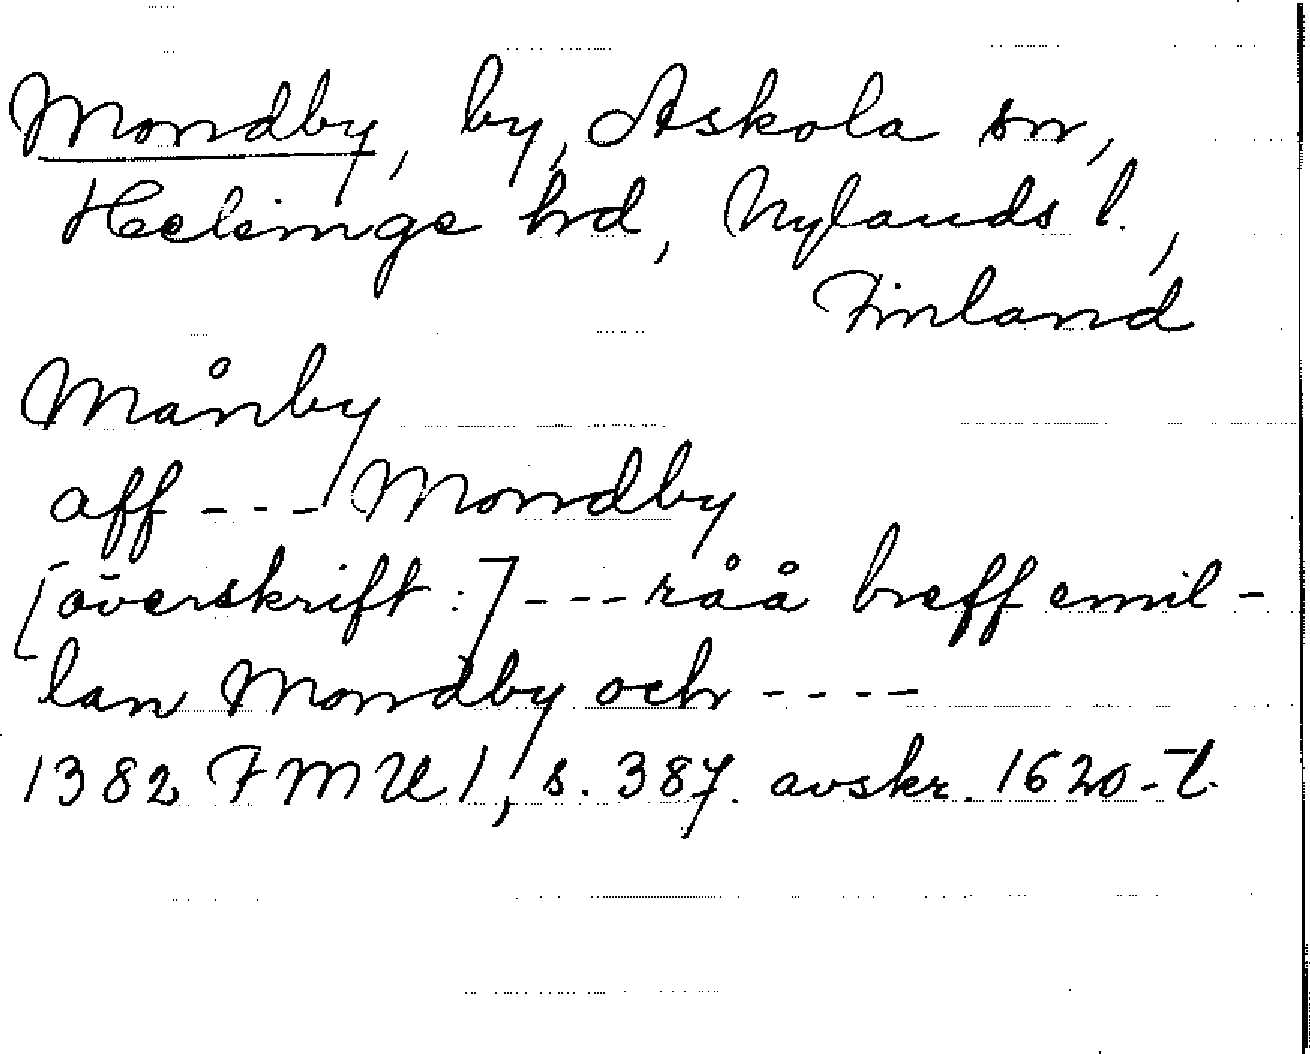 Mondby, by, Askola sn,
Helinge hd, Nylands l.,
Finland
Månby
aff --- Mondby
[överskrift:] --- råå breff emil-
lan Mondby och ----
1382 FMU 1, s. 387. avskr. 1620-t.